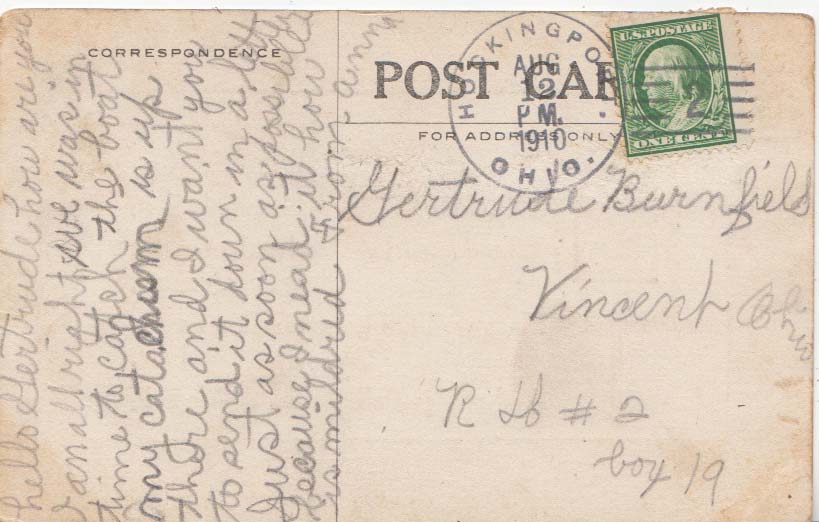 CORRESPONDENCE
hello Gertrude how are you
I am albright we was in
time to catch the boat
my catachusm is up
there and I want you
to send it down in a let
Just as soon as possible
because I nead it how
is mildred From anna
POST CAR
FOR ADDRESS ONLY
HOCKINGPO
AUG
12
PM.
1910
OHIO.
U.S. POSTAGE
ONE CENT
2
Gertrude Burnfield
Vincent Ohio
R # 2
box 19